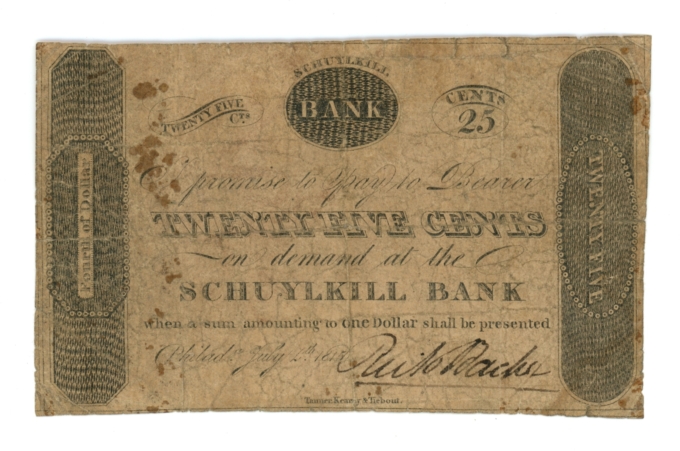 SCHUYLKILL
BANK
TWENTY FIVE
Cts
CENTS
25
Fourth of Dollar
TWENTY FIVE
I promise to pay to Bearer
TWENTY FIVE CENTS
on demand at the
SCHUYLKILL BANK
when a sum amounting to one Dollar shall be presented
Philada July
Tanner, Kearny & Tiebout.